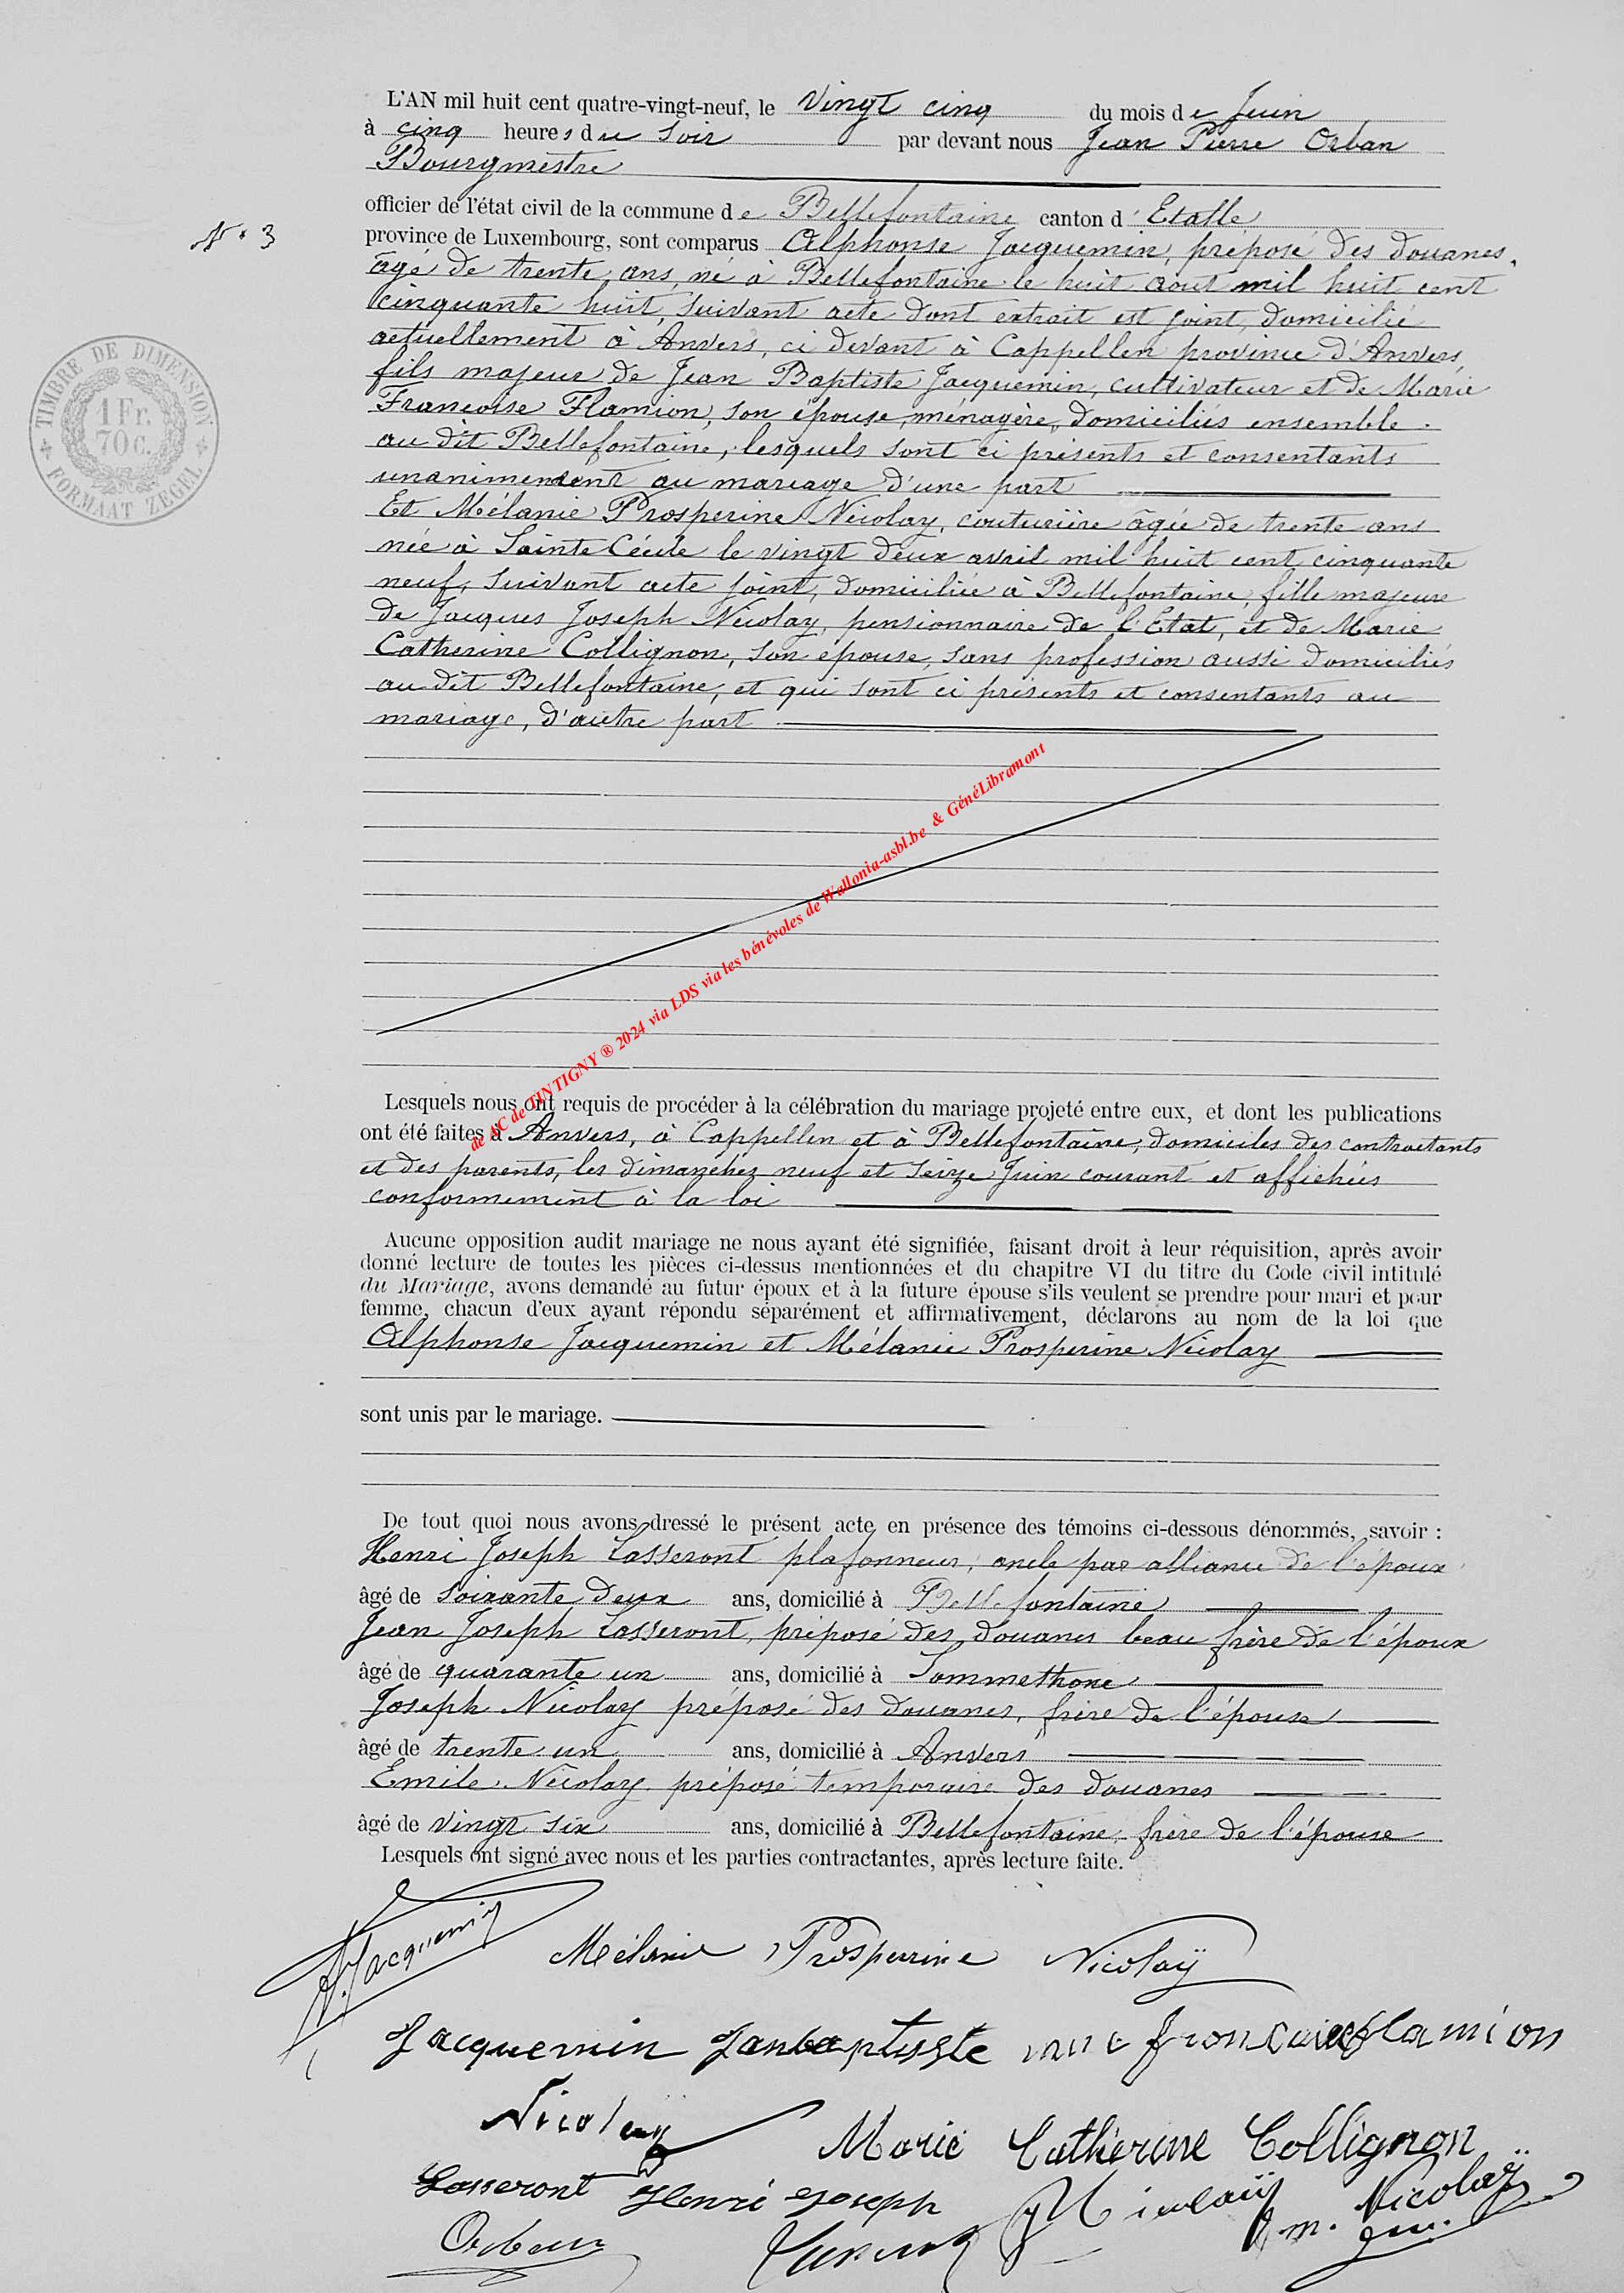 L'AN mil huit cent quatre-vingt-neuf, le Vingt cinq du mois de Juin
à cinq heures du soir par devant nous Jean Pierre Orban
Bourgmestre
officier de l'état civil de la commune de Bellefontaine canton d'Etalle
N° 3
province de Luxembourg, sont comparus Alphonse Jacquemin, préposé des douanes,
âgé de trente ans, né à Bellefontaine le huit aout mil huit cent
cinquante huit, suivant acte dont extrait est joint, domicilié
actuellement à Anvers, ci devant à Cappellen province d'Anvers,
fils majeur de Jean Baptiste Jacquemin, cultivateur et de Marie
Francoise Flamion, son épouse, ménagère, domiciliés ensemble
au dit Bellefontaine, lesquels sont ci présents et consentants
unanimement au mariage d'une part
Et Mélanie Prosperine Nicolay, couturière âgée de trente ans
née à Sainte Cécile le vingt deux avril mil huit cent cinquante
neuf, suivant acte joint, domiciliée à Bellefontaine, fille majeure
de Jacques Joseph Nicolay, pensionnaire de l'Etat, et de Marie
Catherine Collignon, son épouse, sans profession aussi domiciliés
au dit Bellefontaine, et qui sont ci présents et consentants au
mariage, d'autre part
TIMBRE DE DIMENSION
1 Fr.
70 c.
FORMAAT ZEGEL
de AC de TINTIGNY ® 2024 via LDS via les bénévoles de Wallonia-asbl.be & GénéLibramont
Lesquels nous ont requis de procéder à la célébration du mariage projeté entre eux, et dont les publications
ont été faites à Anvers, à Cappellen et à Bellefontaine, domiciles des contractants
et des parents, les dimanches neuf et seize Juin courant et affichées
conformement à la loi
Aucune opposition audit mariage ne nous ayant été signifiée, faisant droit à leur réquisition, après avoir
donné lecture de toutes les pièces ci-dessus mentionnées et du chapitre VI du titre du Code civil intitulé
du Mariage, avons demandé au futur époux et à la future épouse s'ils veulent se prendre pour mari et pour
femme, chacun d'eux ayant répondu séparément et affirmativement, déclarons au nom de la loi que
Alphonse Jacquemin et Mélanie Prosperine Nicolay
sont unis par le mariage.
De tout quoi nous avons dressé le présent acte en présence des témoins ci-dessous dénommés, savoir :
Henri Joseph Lasseront plafonneur, oncle par alliance de l'époux
âgé de soixante deux ans, domicilié à Bellefontaine
Jean Joseph Lasseront, préposé des douanes beau frère de l'époux
âgé de quarante un ans, domicilié à Sommethone
Joseph Nicolay préposé des douanes, frère de l'épouse
âgé de trente un ans, domicilié à Anvers
Emile Nicolay préposé temporaire des douanes
âgé de vingt six ans, domicilié à Bellefontaine, frère de l'épouse
Lesquels ont signé avec nous et les parties contractantes, après lecture faite.
A. Jacquemin
Mélanie Prosperine Nicolaÿ
Jacquemin Janbaptiste Flamion
Nicolay
Marie Catherine Collignon
Lasseront Henri Joseph
Nicolaÿ
Nicolaÿ
Orban